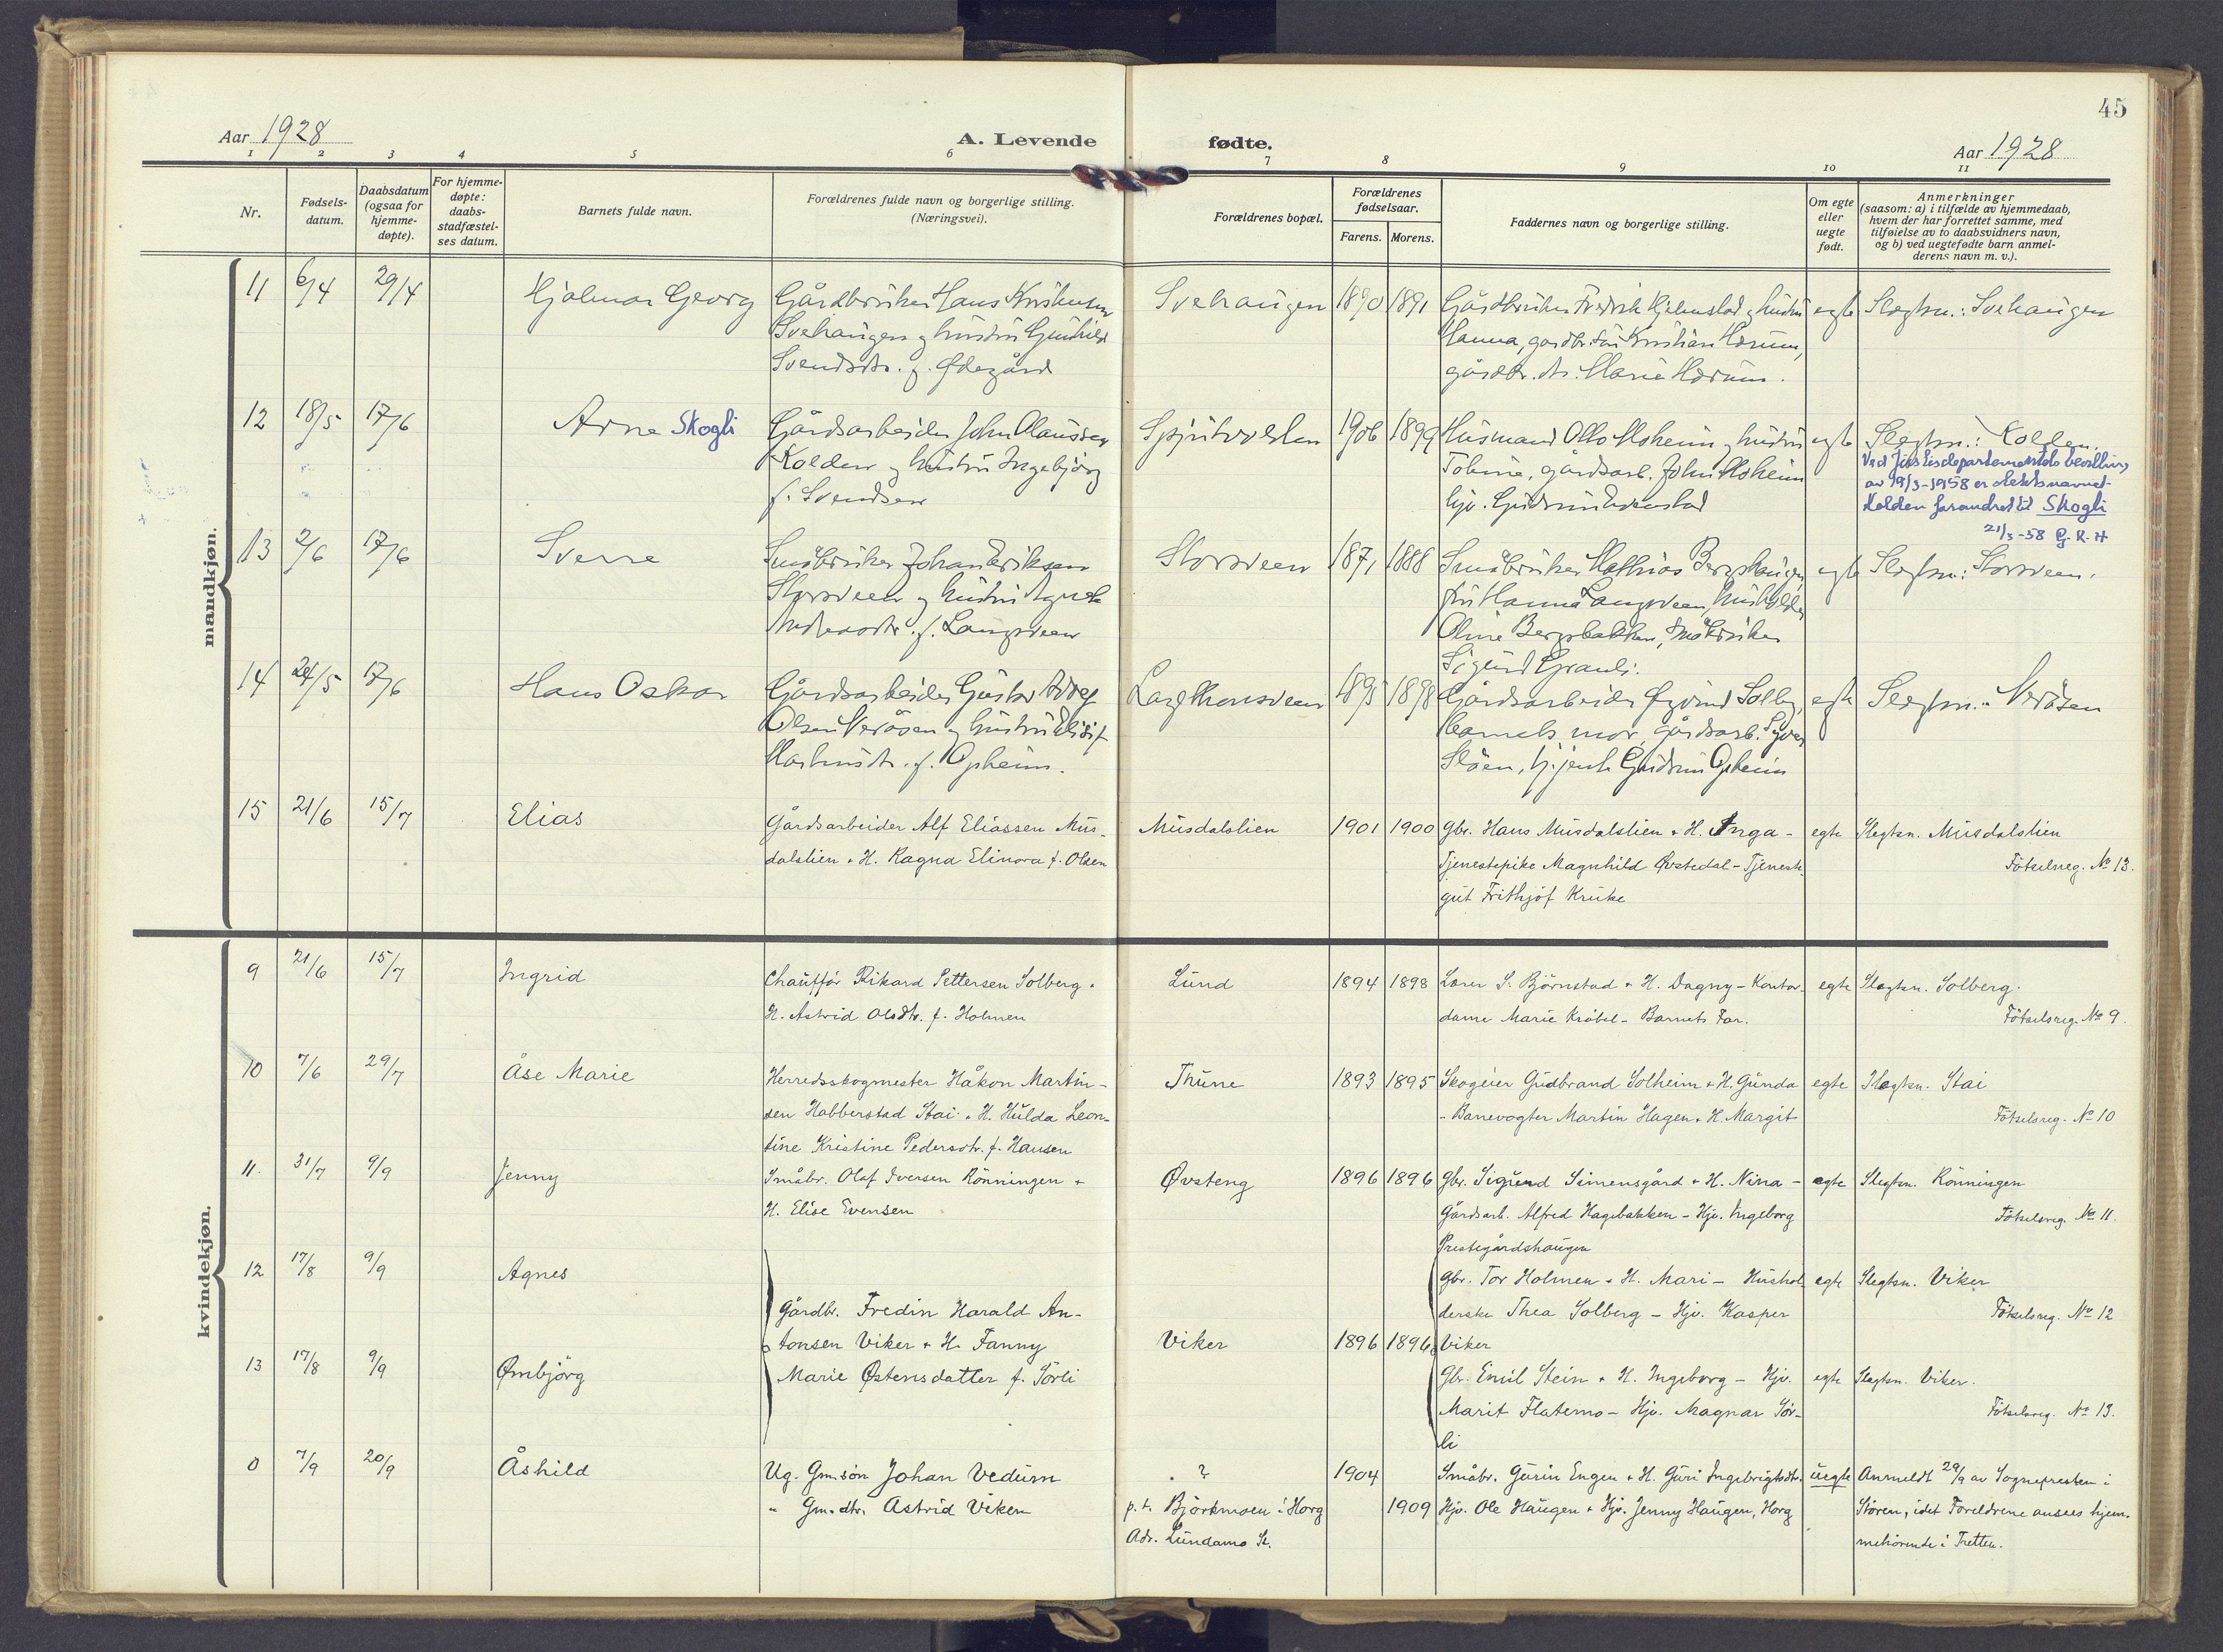 45
Aar 1928
A. Levende fødte.
Aar 1928
1 2 3 4 5 6 7 8 9 10 11
Nr.
Fødsels-
datum.
Daabsdatum
(ogsaa for
hjemme-
døpte).
For hjemme-
døpte:
daabs-
stadfæstel-
ses datum.
Barnets fulde navn.
Forældrenes fulde navn og borgerlige stilling.
(Næringsvei).
Forældrenes bopæl.
Forældrenes
fødselsaar.
Farens. Morens.
Faddernes navn og borgerlige stilling.
Om egte
eller
uegte
født.
Anmerkninger
(saasom: a) i tilfælde av hjemmedaab,
hvem der har forrettet samme, med
tilføielse av to daabsvidners navn,
og b) ved uegtefødte barn anmel-
derens navn m. v.).
mandkjøn.
11 6/4 29/4 Hjalmar Georg
Gårdbruker Hans Kristensen
Svehaugen og hustru Gunhild
Svendsdtr. f. Ødegård
Svehaugen 1890 1891
Gårdbruker Fredrik Hjelmstad og hustru
Hanna, gårdbr. sön Kristian Hærum,
gårdbr. dtr. Marie Hærum.
egte Slegtsn.: Svehaugen
12 18/5 17/6 Arne Skogli
Gårdsarbeider John Olaussen
Kolden og hustru Ingebjörg
f. Svendsen
1906 1899
Husmand Otto Moheim og hustru
Toline, gårdsarb. John Moheim
hjv. Gudrun
egte Slegtsn.: Kolden.
Ved Justisdepartementets bevilling
av 19/3-1958 er slektsnavnet
Kolden forandret til Skogli
21/3-58 G. K. H
13 2/6 17/6 Sverre
Småbruker Johan Eriksen
Storsveen og hustru Agnete
f. Langsveen
Storsveen 1871 1888
Småbruker Mathias Bergshaugen
fru Hanna Langsveen, husholder
Oline Bergsbakken, småbruker
Sigurd Granli.
egte Slegtsn.: Storsveen.
14 24/5 17/6 Hans Oskar
Gårdsarbeider Gustav Adolf
Olsen Veråsen og hustru
Martinsdtr. f. Opheim.
1895 1898
Gårdsarbeider Øyvind Solberg,
barnets mor, gårdsarb. Syver
Slåen, tj.jente Gudrun Opheim
egte Slegtsn.: Veråsen
15 21/6 15/7 Elias
Gårdsarbeider Alf Eliassen Mus-
dalslien + H. Ragna Elinora f. Olsen
Musdalslien 1901 1900
Gbr. Hans Musdalslien + H. Inga -
Tjenestepike Magnhild Øvstedal - Tjeneste-
gut Frithjof Kruke
egte Slegtsn. Musdalslien
Fötselreg. No 13.
kvindekjøn.
9 21/6 15/7 Ingrid
Chauffør Rikard Pettersen Solberg +
H. Astrid Olsdtr. f. Holmen
Lund 1894 1898
Lærer S. Björnstad + H. Dagny - Kontor-
dame Marie Kräbel - Barnets Far.
egte Slegtsn. Solberg.
Fötselsreg. No 9.
10 7/6 29/7 Åse Marie
Herredsskogmester Håkon Martin-
sen Habberstad Stai + H. Hulda Leon-
tine Kristine Pedersdtr. f. Hansen
Thune 1893 1895
Skogeier Gudbrand Solheim + H. Gunda
- Banevogter Martin Hagen + H. Margit
egte Slegtsn. Stai
Fötselsreg. No 10
11. 31/7 9/9 Jenny
Småbr. Olaf Iversen Rönningen +
H. Elise Evensen
Øvsteng 1896 1896
Gbr. Sigurd Simensgård + H. Nina -
Gårdsarb. Alfred Hagebakken - Hjv. Ingeborg
Prestegårdshaugen
egte Slegtsn. Rönningen
Fötselsreg. No 11.
12 17/8 9/9 Agnes
Gårdbr. Fredin Harald An-
tonsen Viker + H. Fanny
Marie Østensdatter f. Sörli
Viker 1896 1896
Gbr. Tor Holmen + H. Mari - Hushol-
derske Thea Solberg - Hjv. Kasper
Viker
egte Slegtsn. Viker
Fötselsreg. No 12
13 17/8 9/9 Ørnbjörg
Gbr. Emil Stein + H. Ingeborg - Hjv.
Marit Flatemo - Hjv. Magnar Sör-
li
egte Slegtsn. Viker.
Fötselsreg. No 13.
0 7/9 20/9 Åshild
Ug. Gm.sön Johan Vedum
" Gm.dtr. Astrid Viken
?
p. t. Björkmoen i Horg
Adr. Lundamo St.
1904
1909
Småbr. Gurin Engen + H. Guri Ingebrigtsdtr.
Hjv. Ole Haugen + Hjv. Jenny Haugen, Horg
uegte Anmeldt 29/9 av Sognepresten i
Stören, idet Foreldrene ansees hjem-
mehörende i Tretten.